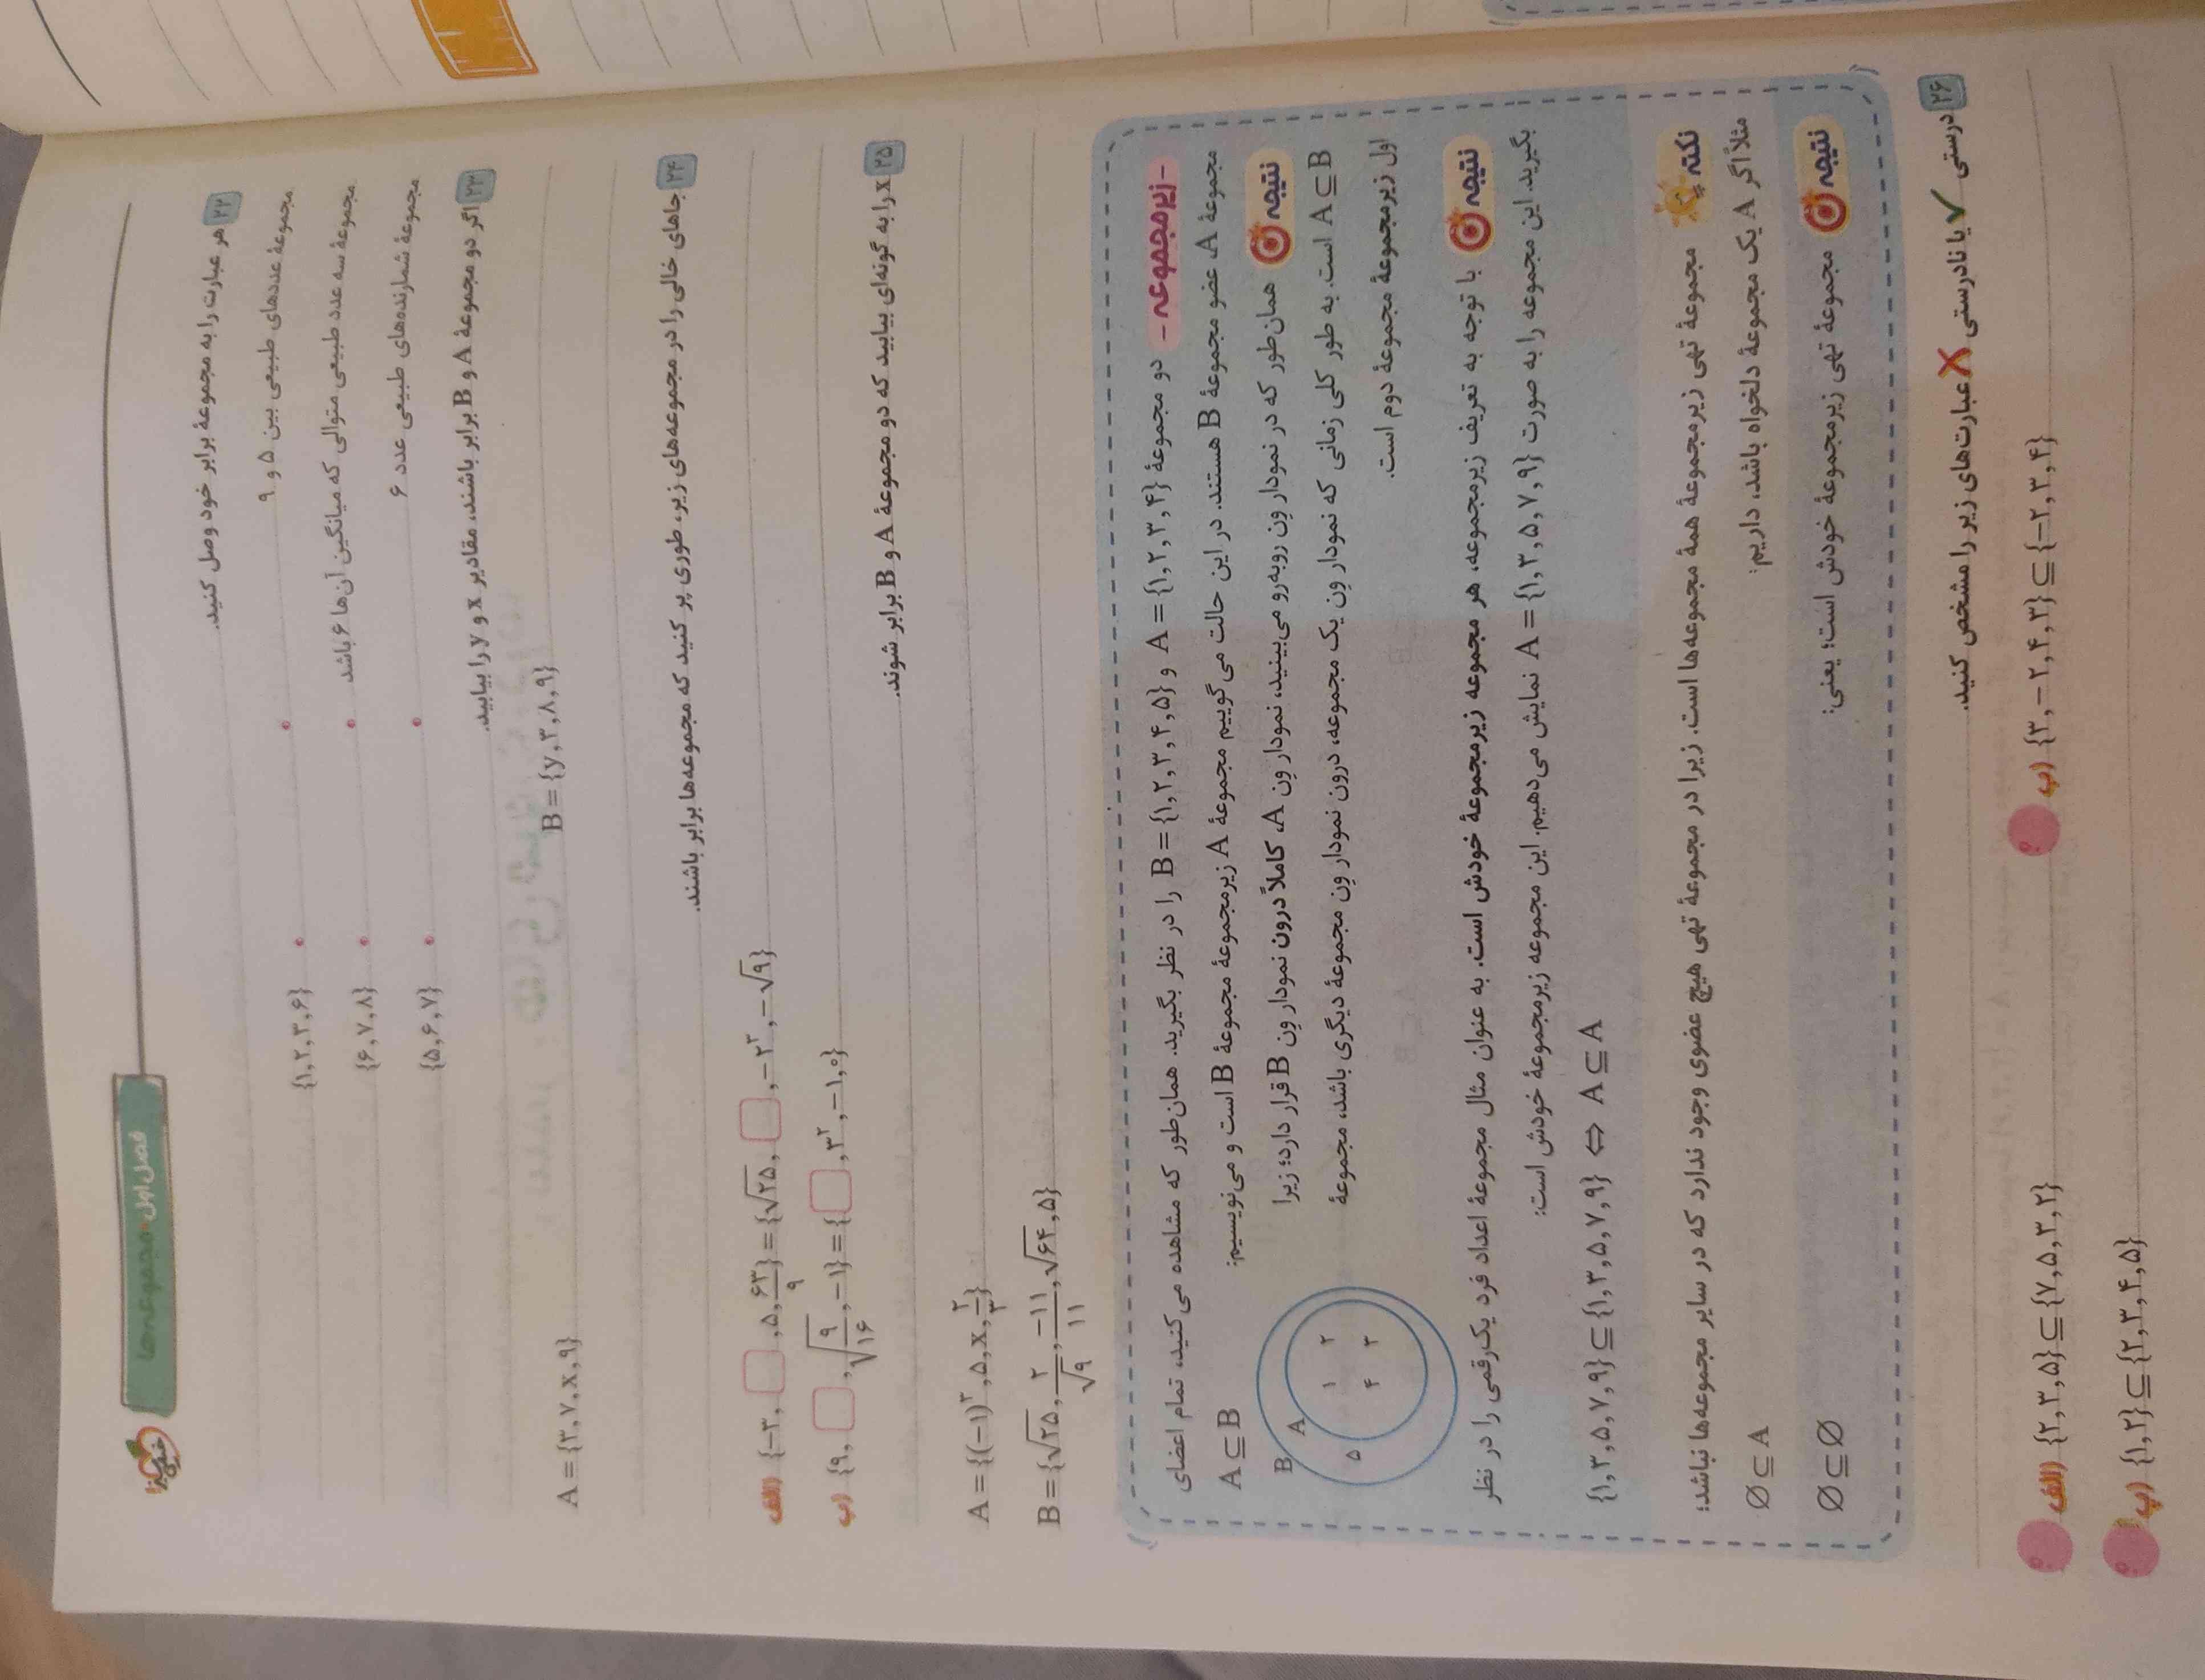 فصل اول • مجموعه‌ها
خیلی سبز
۲۲ هر عبارت را به مجموعهٔ برابر خود وصل کنید.
مجموعهٔ عددهای طبیعی بین ۵ و ۹ • • {۱,۲,۳,۶}
مجموعهٔ سه عدد طبیعی متوالی که میانگین آن‌ها ۶ باشد • • {۶,۷,۸}
مجموعهٔ شمارنده‌های طبیعی عدد ۶ • • {۵,۶,۷}
۲۳ اگر دو مجموعهٔ A و B برابر باشند، مقادیر x و y را بیابید.
A = {۳,۷,x,۹} B = {y,۳,۸,۹}
۲۴ جاهای خالی را در مجموعه‌های زیر، طوری پر کنید که مجموعه‌ها برابر باشند.
الف) {−۳, □, ۵, ۶۳/۹} = {√۲۵, □, −۲^۲, −√۹}
ب) {۹, □, √(۹/۱۶), −۱} = {□, ۳^۲, −۱, ۰}
۲۵ x را به گونه‌ای بیابید که دو مجموعهٔ A و B برابر شوند.
A = {(−۱)^۳, ۵, x, ۲/۳}
B = {√۲۵, ۲/√۹, −۱۱/۱۱, √۶۴, ۵}
- زیرمجموعه - دو مجموعهٔ A = {۱,۲,۳,۴} و B = {۱,۲,۳,۴,۵} را در نظر بگیرید. همان‌طور که مشاهده می‌کنید، تمام اعضای
مجموعهٔ A، عضو مجموعهٔ B هستند. در این حالت می‌گوییم مجموعهٔ A زیرمجموعهٔ مجموعهٔ B است و می‌نویسیم: A ⊆ B
نتیجه همان‌طور که در نمودار وِن روبه‌رو می‌بینید، نمودار وِن A، کاملاً درون نمودار وِن B قرار دارد؛ زیرا
A ⊆ B است. به طور کلی زمانی که نمودار وِن یک مجموعه، درون نمودار وِن مجموعهٔ دیگری باشد، مجموعهٔ
اول زیرمجموعهٔ مجموعهٔ دوم است.
B
A
۱ ۲
۵
۴ ۳
نتیجه با توجه به تعریف زیرمجموعه، هر مجموعه زیرمجموعهٔ خودش است. به عنوان مثال مجموعهٔ اعداد فرد یک‌رقمی را در نظر
بگیرید. این مجموعه را به صورت A = {۱,۳,۵,۷,۹} نمایش می‌دهیم. این مجموعه زیرمجموعهٔ خودش است:
{۱,۳,۵,۷,۹} ⊆ {۱,۳,۵,۷,۹} ⇔ A ⊆ A
نکته مجموعهٔ تهی زیرمجموعهٔ همهٔ مجموعه‌ها است. زیرا در مجموعهٔ تهی هیچ عضوی وجود ندارد که در سایر مجموعه‌ها نباشد؛
مثلاً اگر A یک مجموعهٔ دلخواه باشد، داریم: ∅ ⊆ A
نتیجه مجموعهٔ تهی زیرمجموعهٔ خودش است؛ یعنی: ∅ ⊆ ∅
۲۶ درستی ✓ یا نادرستی ✗ عبارت‌های زیر را مشخص کنید.
الف) {۲,۳,۵} ⊆ {۷,۵,۳,۲} ب) {۳,−۲,۴,۳} ⊆ {−۲,۳,۴}
پ) {۱,۲} ⊆ {۲,۳,۴,۵}